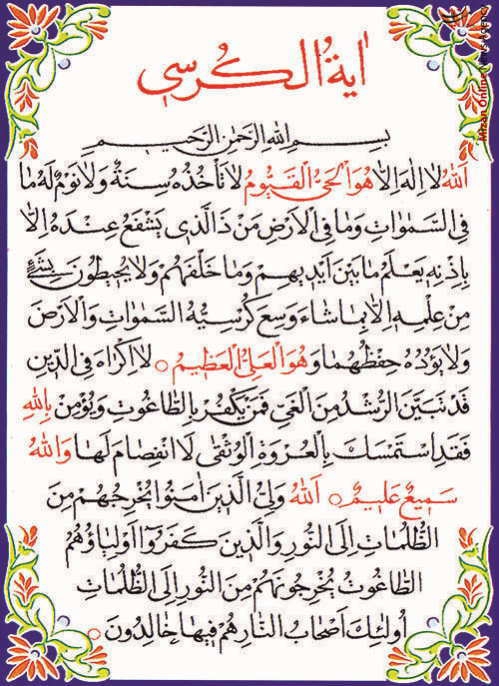 اٰيَةُ الْكُرْسِي
بِسْمِ اللهِ الرَّحْمٰنِ الرَّحِيمِ
اَللهُ لَا اِلٰهَ اِلَّا هُوَ الْحَيُّ الْقَيُّومُ لَا تَأْخُذُهُ سِنَةٌ وَلَا نَوْمٌ لَهُ مَا
فِي السَّمٰوَاتِ وَمَا فِي الْاَرْضِ مَنْ ذَا الَّذِي يَشْفَعُ عِنْدَهُ اِلَّا
بِاِذْنِهِ يَعْلَمُ مَا بَيْنَ اَيْدِيهِمْ وَمَا خَلْفَهُمْ وَلَا يُحِيطُونَ بِشَيْءٍ
مِنْ عِلْمِهِ اِلَّا بِمَا شَاءَ وَسِعَ كُرْسِيُّهُ السَّمٰوَاتِ وَالْاَرْضَ
وَلَا يَؤُدُهُ حِفْظُهُمَا وَهُوَ الْعَلِيُّ الْعَظِيمُ ○ لَا اِكْرَاهَ فِي الدِّينِ
قَدْ تَبَيَّنَ الرُّشْدُ مِنَ الْغَيِّ فَمَنْ يَكْفُرْ بِالطَّاغُوتِ وَيُؤْمِنْ بِاللهِ
فَقَدِ اسْتَمْسَكَ بِالْعُرْوَةِ الْوُثْقٰى لَا انْفِصَامَ لَهَا وَاللهُ
سَمِيعٌ عَلِيمٌ ○ اَللهُ وَلِيُّ الَّذِينَ اٰمَنُوا يُخْرِجُهُمْ مِنَ
الظُّلُمَاتِ اِلَى النُّورِ وَالَّذِينَ كَفَرُوا اَوْلِيَاؤُهُمُ
الطَّاغُوتُ يُخْرِجُونَهُمْ مِنَ النُّورِ اِلَى الظُّلُمَاتِ
اُولٰئِكَ اَصْحَابُ النَّارِ هُمْ فِيهَا خَالِدُونَ ○
Mizan Online